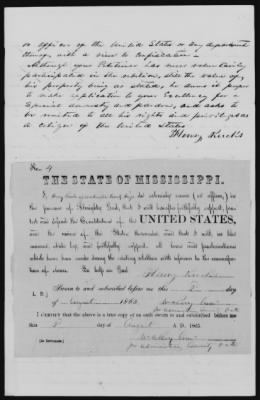 or officer of the United States or any department
thereof, with a view to Confiscation –
Although your Petitioner has never voluntarily
participated in the rebellion, still the value of
his property being as stated, he deems it proper
to make application to your Excellency for a
Special amnesty and pardon, and asks to
be restored to all his rights and privileges as
a citizen of the United States
Henry
No 4
THE STATE OF MISSISSIPPI.
I,
do solemnly swear, (or affirm,) in
the presence of Almighty God, that I will henceforth faithfully support, protect
and defend the Constitution of the UNITED STATES,
and the union of the States thereunder, and that I will, in like
manner, abide by, and faithfully support all laws and proclamations
which have been made during the existing rebellion with reference to the emancipation
of slaves. So help me God.
Henry
Sworn to and subscribed before me this 8 day
L. S.
of August 1865.
I CERTIFY that the above is a true copy of an oath sworn to and subscribed before me
this 8 day of August A. D. 1865.